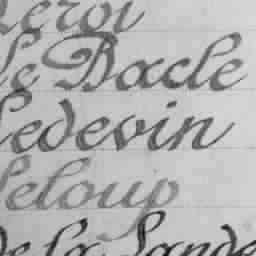 Leroi
le Bacle
Ledevin
Leloup
De la Lande